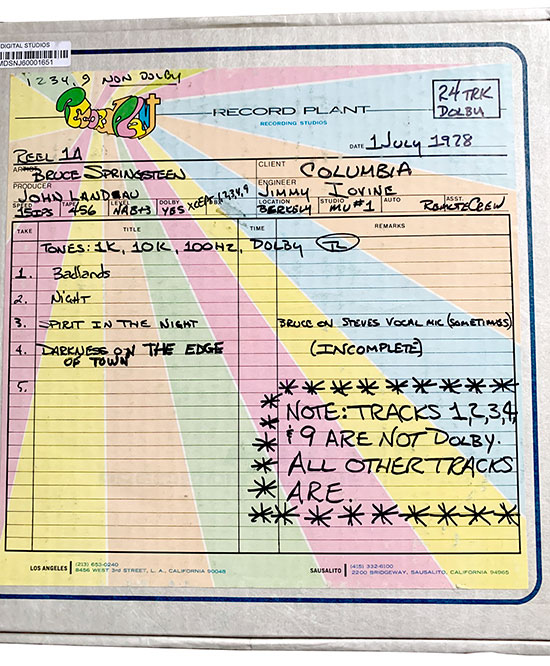 DIGITAL STUDIOS
MDSNJ60001651
1 2 3 4, 9 NON DOLBY
Record Plant
RECORD PLANT
RECORDING STUDIOS
24 TRK
DOLBY
REEL 1A
DATE 1 July 1978
ARTIST BRUCE SPRINGSTEEN
CLIENT COLUMBIA
PRODUCER JOHN LANDAU
ENGINEER JIMMY IOVINE
SPEED 15IPS TAPE 456 LEVEL NAB+3 DOLBY YES XCEPT 1,2,3,4,9 DBX
LOCATION BERKELY STUDIO MU #1 AUTO ASST. REMOTE CREW
TAKE TITLE TIME REMARKS
TONES: 1K, 10K, 100HZ, DOLBY TL
1. Badlands
2. Night
3. SPIRIT IN THE NIGHT BRUCE ON STEVES VOCAL MIC (SOMETIMES)
4. DARKNESS ON THE EDGE OF TOWN (INCOMPLETE)
5.
NOTE: TRACKS 1,2,3,4,
& 9 ARE NOT DOLBY.
ALL OTHER TRACKS
ARE.
LOS ANGELES (213) 653-0240
8456 WEST 3rd STREET, L. A., CALIFORNIA 90048
SAUSALITO (415) 332-6100
2200 BRIDGEWAY, SAUSALITO, CALIFORNIA 94965